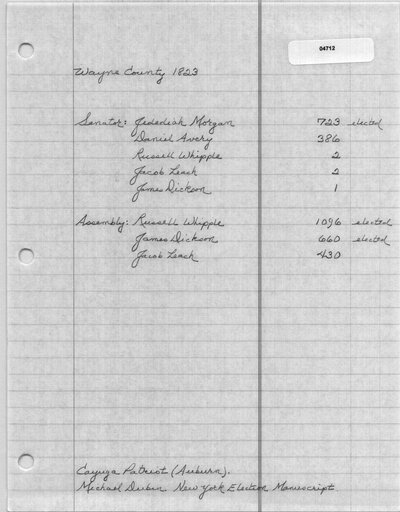 04712
Wayne County 1823
Senator: Jedediah Morgan 723 elected
Daniel Avery 386
Russell Whipple 2
Jacob Leach 2
James Dickson 1
Assembly: Russell Whipple 1096 elected
James Dickson 660 elected
Jacob Leach 430
Cayuga Patriot (Auburn).
Michael Dubin New York Election Manuscript.